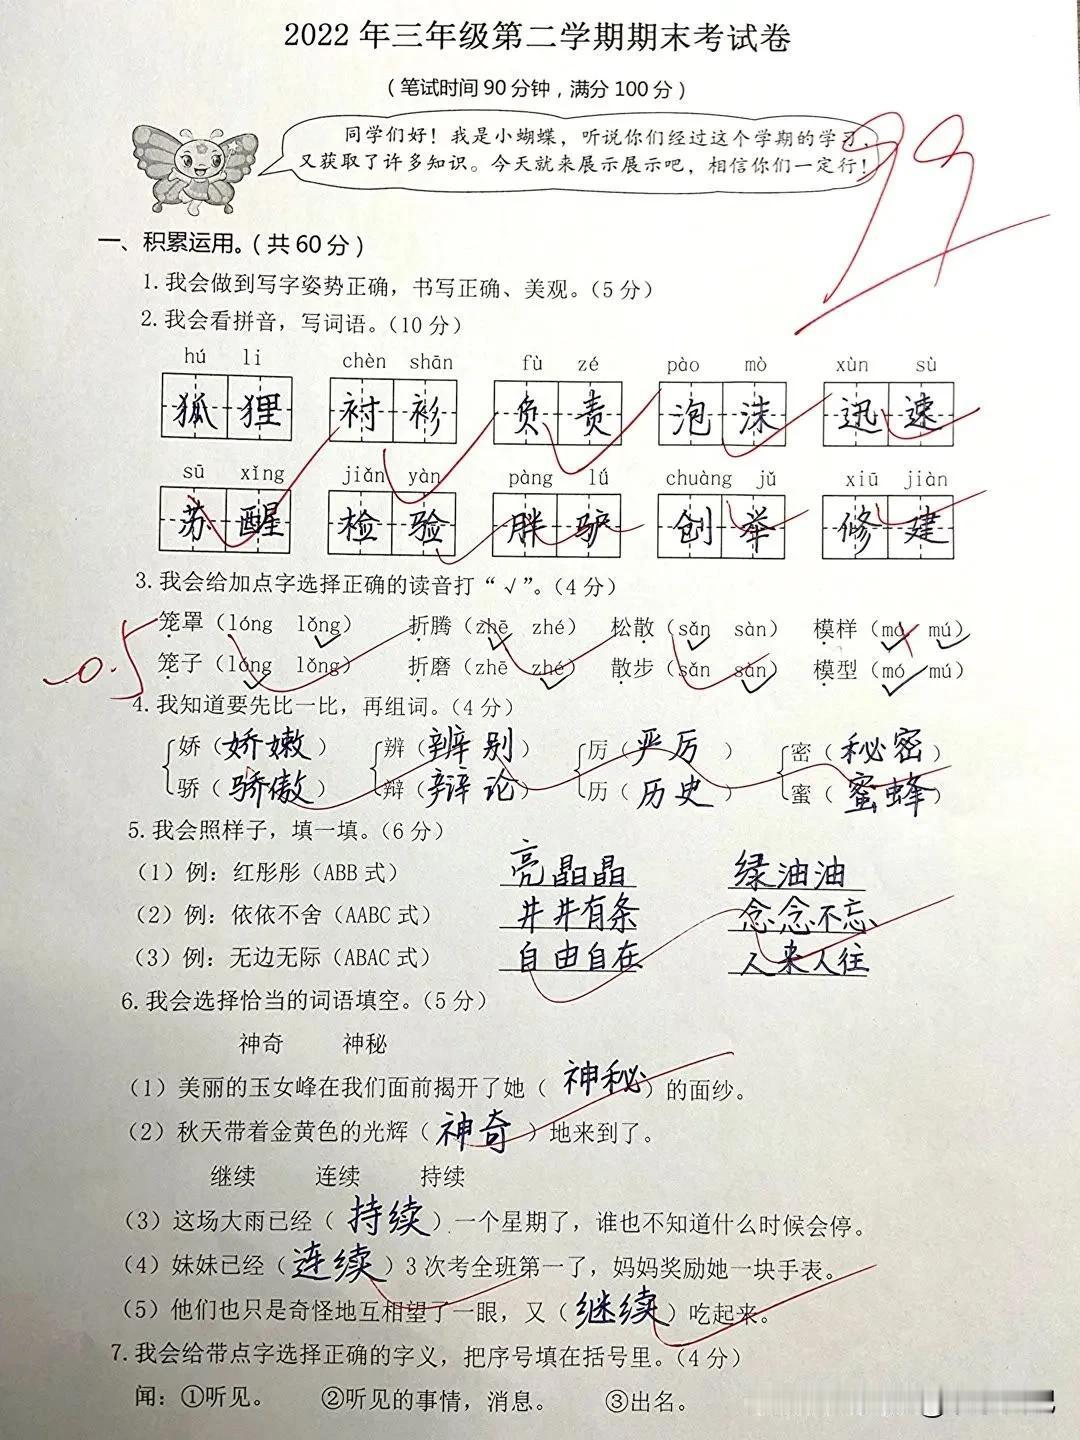 2022年三年级第二学期期末考试卷
（笔试时间90分钟，满分100分）
同学们好！我是小蝴蝶，听说你们经过这个学期的学习，
又获取了许多知识。今天就来展示展示吧，相信你们一定行！
99
一、积累运用。（共60分）
1.我会做到写字姿势正确，书写正确、美观。（5分）
2.我会看拼音，写词语。（10分）
hú li chèn shān fù zé pào mò xùn sù
狐狸 衬衫 负责 泡沫 迅速
sū xǐng jiǎn yàn pàng lǘ chuàng jǔ xiū jiàn
苏醒 检验 胖驴 创举 修建
3.我会给加点字选择正确的读音打“√”。（4分）
笼罩（lóng lǒng✓） 折腾（zhē✓ zhé） 松散（sǎn✓ sàn） 模样（mó mú✓）
-0.5
笼子（lóng✓ lǒng） 折磨（zhē zhé✓） 散步（sǎn sàn✓） 模型（mó✓ mú）
4.我知道要先比一比，再组词。（4分）
娇（娇嫩） 辨（辨别） 厉（严厉） 密（秘密）
骄（骄傲） 辩（辩论） 历（历史） 蜜（蜜蜂）
5.我会照样子，填一填。（6分）
（1）例：红彤彤（ABB式） 亮晶晶 绿油油
（2）例：依依不舍（AABC式） 井井有条 念念不忘
（3）例：无边无际（ABAC式） 自由自在 人来人往
6.我会选择恰当的词语填空。（5分）
神奇 神秘
（1）美丽的玉女峰在我们面前揭开了她（神秘）的面纱。
（2）秋天带着金黄色的光辉（神奇）地来到了。
继续 连续 持续
（3）这场大雨已经（持续）一个星期了，谁也不知道什么时候会停。
（4）妹妹已经（连续）3次考全班第一了，妈妈奖励她一块手表。
（5）他们也只是奇怪地互相望了一眼，又（继续）吃起来。
7.我会给带点字选择正确的字义，把序号填在括号里。（4分）
闻：①听见。 ②听见的事情，消息。 ③出名。